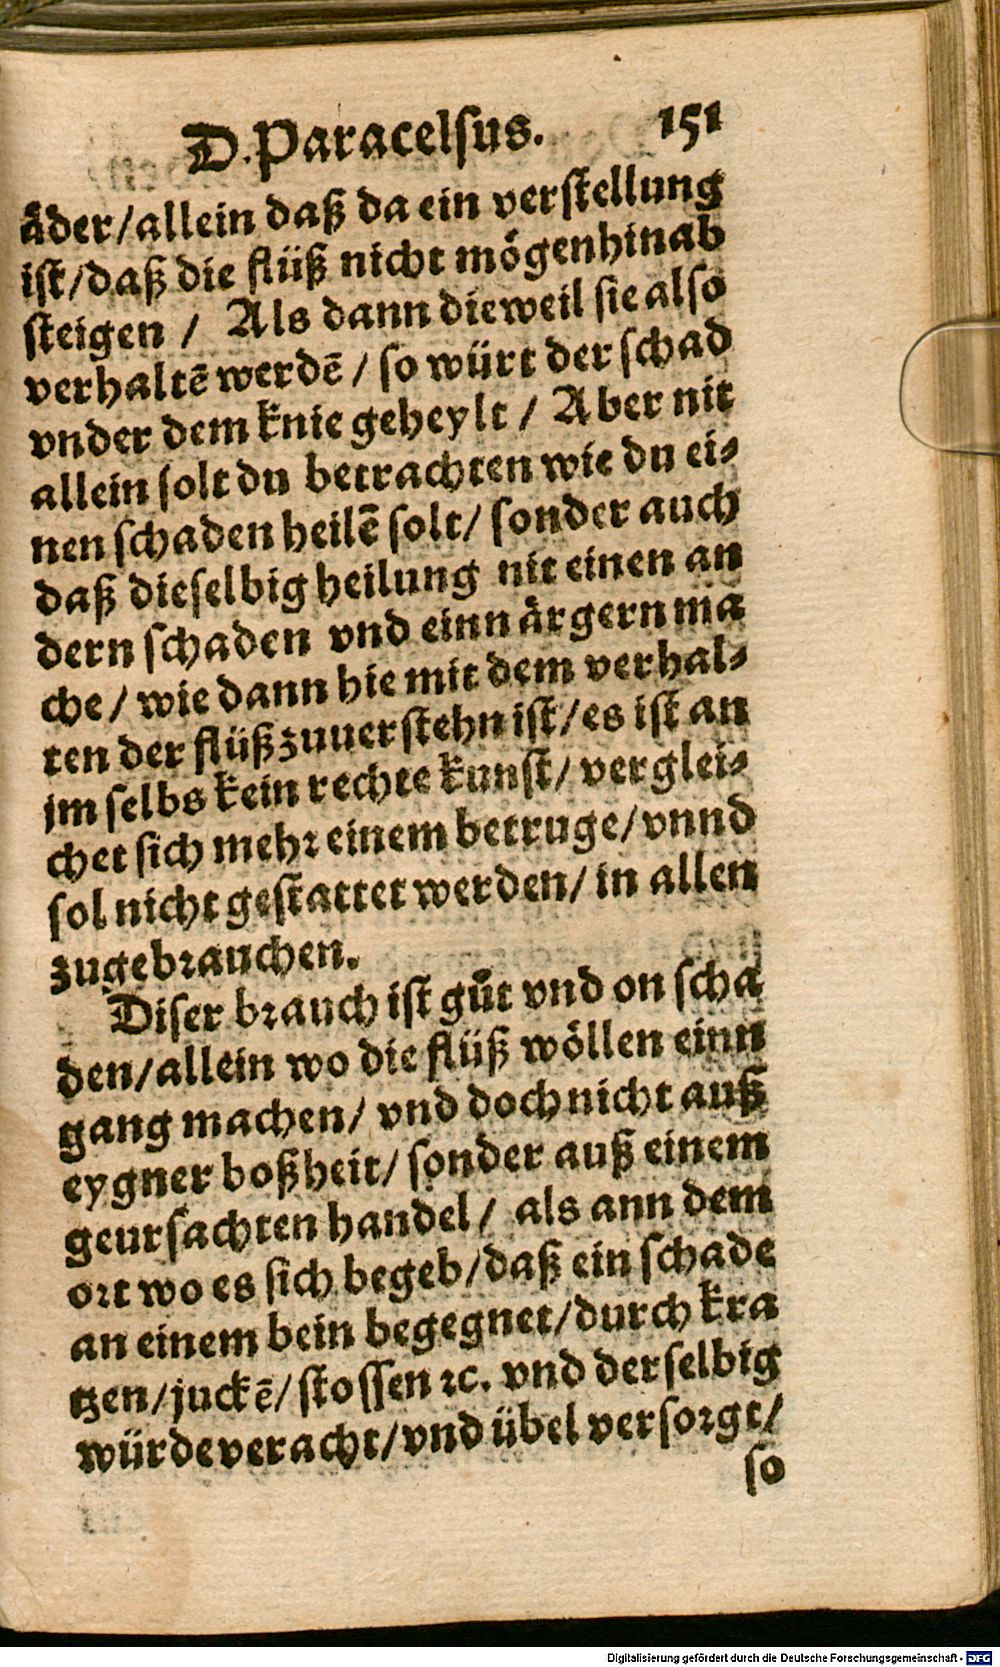 D. Paracelsus. 151
åder/allein daß da ein verstellung
ist/daß die flüß nicht mögen hinab
steigen / Als dann dieweil sie also
verhaltē werdē / so würt der schad
vnder dem knie geheylt / Aber nit
allein solt du betrachten wie du ei⸗
nen schaden heilē solt/ sonder auch
daß dieselbig heilung nit einen an
dern schaden vnd einn ärgern ma
che/ wie dann hie mit dem verhal⸗
ten der flüß zuuerstehn ist/es ist an
jm selbs kein rechte kunst/ verglei⸗
chet sich mehr einem betruge/vnnd
sol nicht gestattet werden/ in allen
zugebrauchen.
Diser brauch ist gůt vnd on scha
den/allein wo die flüß wöllen einn
gang machen/ vnd doch nicht auß
eygner boßheit/ sonder auß einem
geursachten handel/ als ann dem
ort wo es sich begeb/daß ein schade
an einem bein begegnet/durch kra
tzen/juckē/ stossen ꝛc. vnd derselbig
würde veracht/vnd übel versorgt/
so
Digitalisierung gefördert durch die Deutsche Forschungsgemeinschaft - DFG